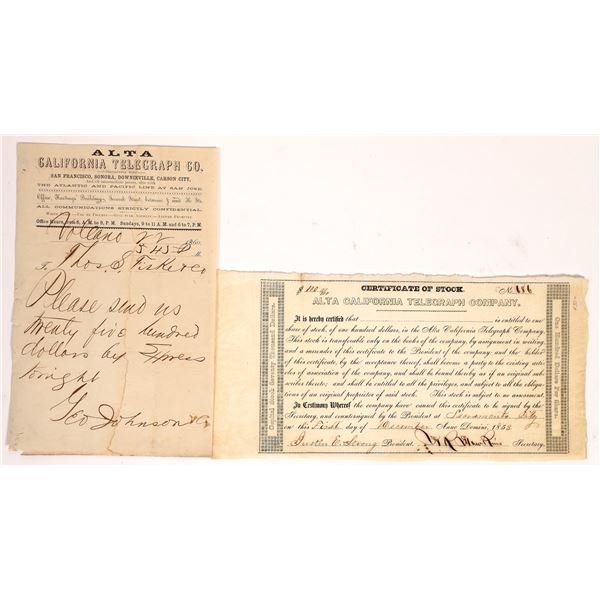 ALTA
CALIFORNIA TELEGRAPH CO.
SAN FRANCISCO, SONORA, DOWNIEVILLE, CARSON CITY,
THE ATLANTIC AND PACIFIC LINE AT SAN JOSE
ALL COMMUNICATIONS STRICTLY CONFIDENTIAL
Office Hours, from 8, A.M. to 9, P.M. Sundays, 9 to 11 A.M. and 6 to 7, P.M.
Volcano 22 186
545 P
To Thos. S. Fiske & Co
Please send us
twenty five hundred
dollars by Express
tonight
Geo Johnson & Co
$ 100 CERTIFICATE OF STOCK. No.
ALTA CALIFORNIA TELEGRAPH COMPANY.
It is hereby certified that is entitled to one
share of stock, of one hundred dollars, in the Alta California Telegraph Company.
This stock is transferable only on the books of the company, by assignment in writing,
and a surrender of this certificate to the President of the company and the holder
of this certificate, by the acceptance thereof, shall become a party to the existing arti-
cles of association of the company, and shall be bound thereby as if an original sub-
scriber thereto; and shall be entitled to all the privileges, and subject to all the obliga-
tions of an original proprietor of said stock. This stock is subject to no assessment.
In Testimony Whereof the company have caused this certificate to be signed by the
Secretary, and countersigned by the President at Sacramento City
on this First day of December Anno Domini, 1853
Justin E. Strong President. Secretary.
Capital Stock Seventy Thousand Dollars.
One Hundred Dollars Per Share.